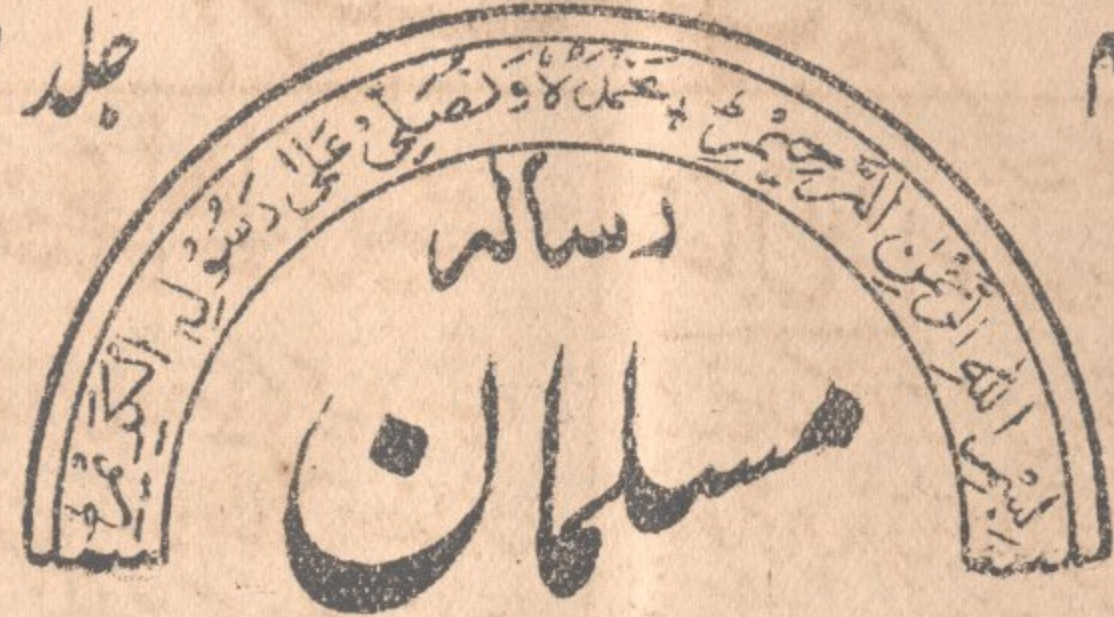 جلد
بِسْمِ اللهِ الرَّحْمٰنِ الرَّحِيْمِ نَحْمَدُهٗ وَنُصَلِّيْ عَلٰى رَسُوْلِهِ الْكَرِيْمِ
رسالہ
مسلمان